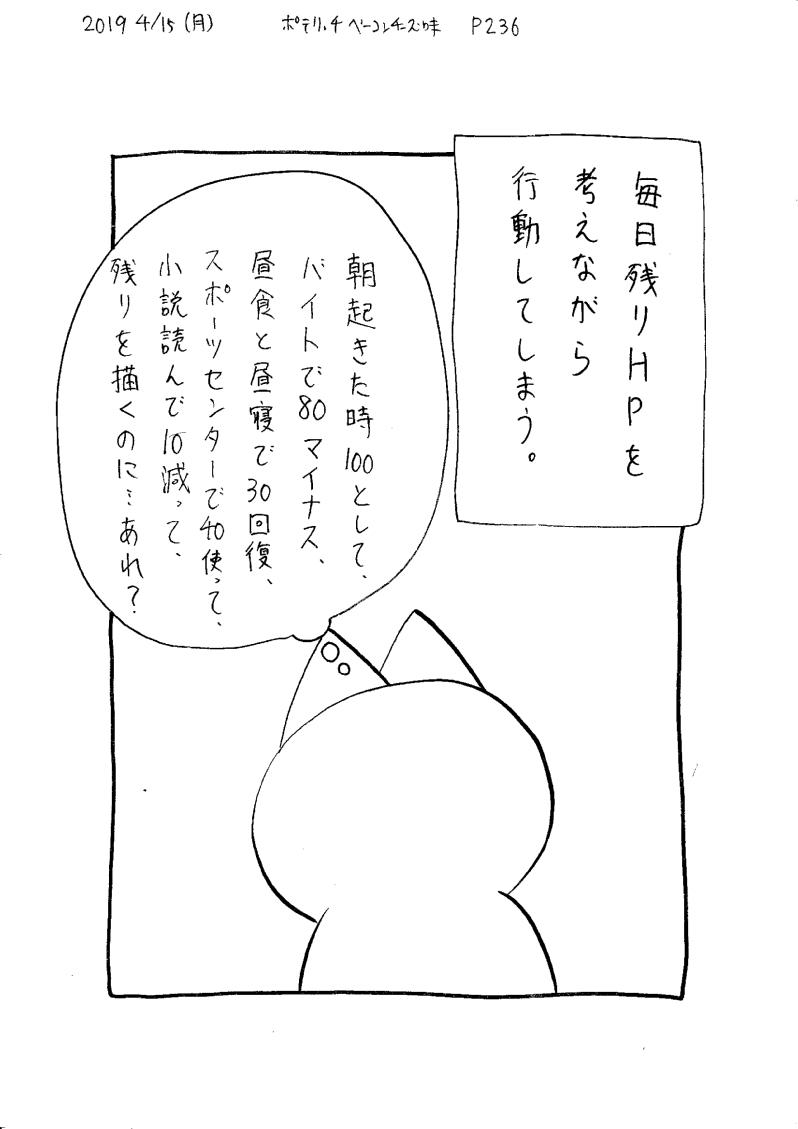 2019 4/15(月)
ポテリッチ ベーコンチーズ味
P236
毎日残りHPを
考えながら
行動してしまう。
朝起きた時100として、
バイトで80マイナス、
昼食と昼寝で30回復、
スポーツセンターで40使って、
小説読んで10減って、
残りを描くのに…あれ?